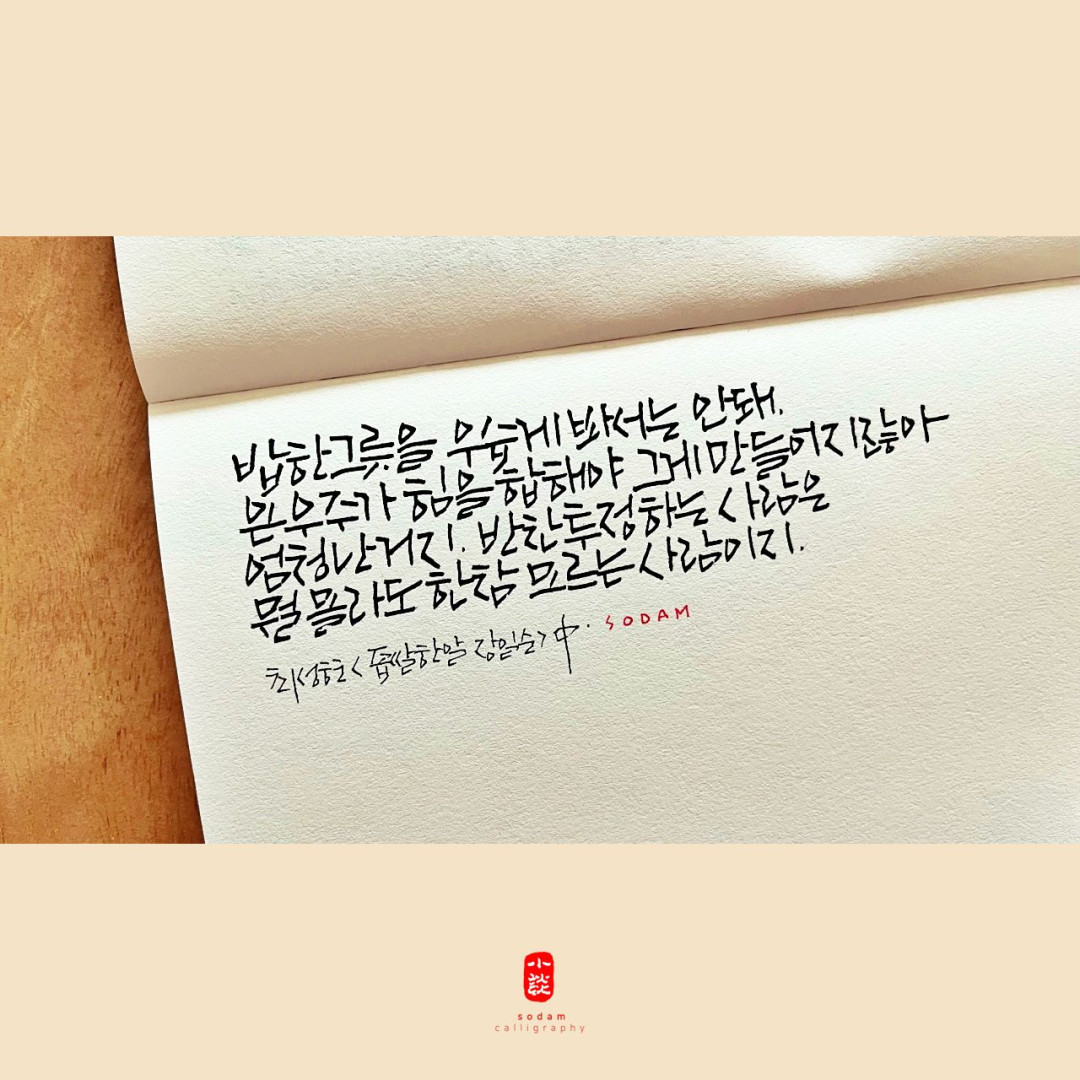 밥한그릇을 우습게 봐서는 안돼.
온우주가 힘을 합해야 그게 만들어지잖아
엄청난거지. 반찬투정하는 사람은
뭘 몰라도 한참 모르는 사람이지.
최성현 <좁쌀한알 장일순> 中. SODAM
小談
sodam
calligraphy